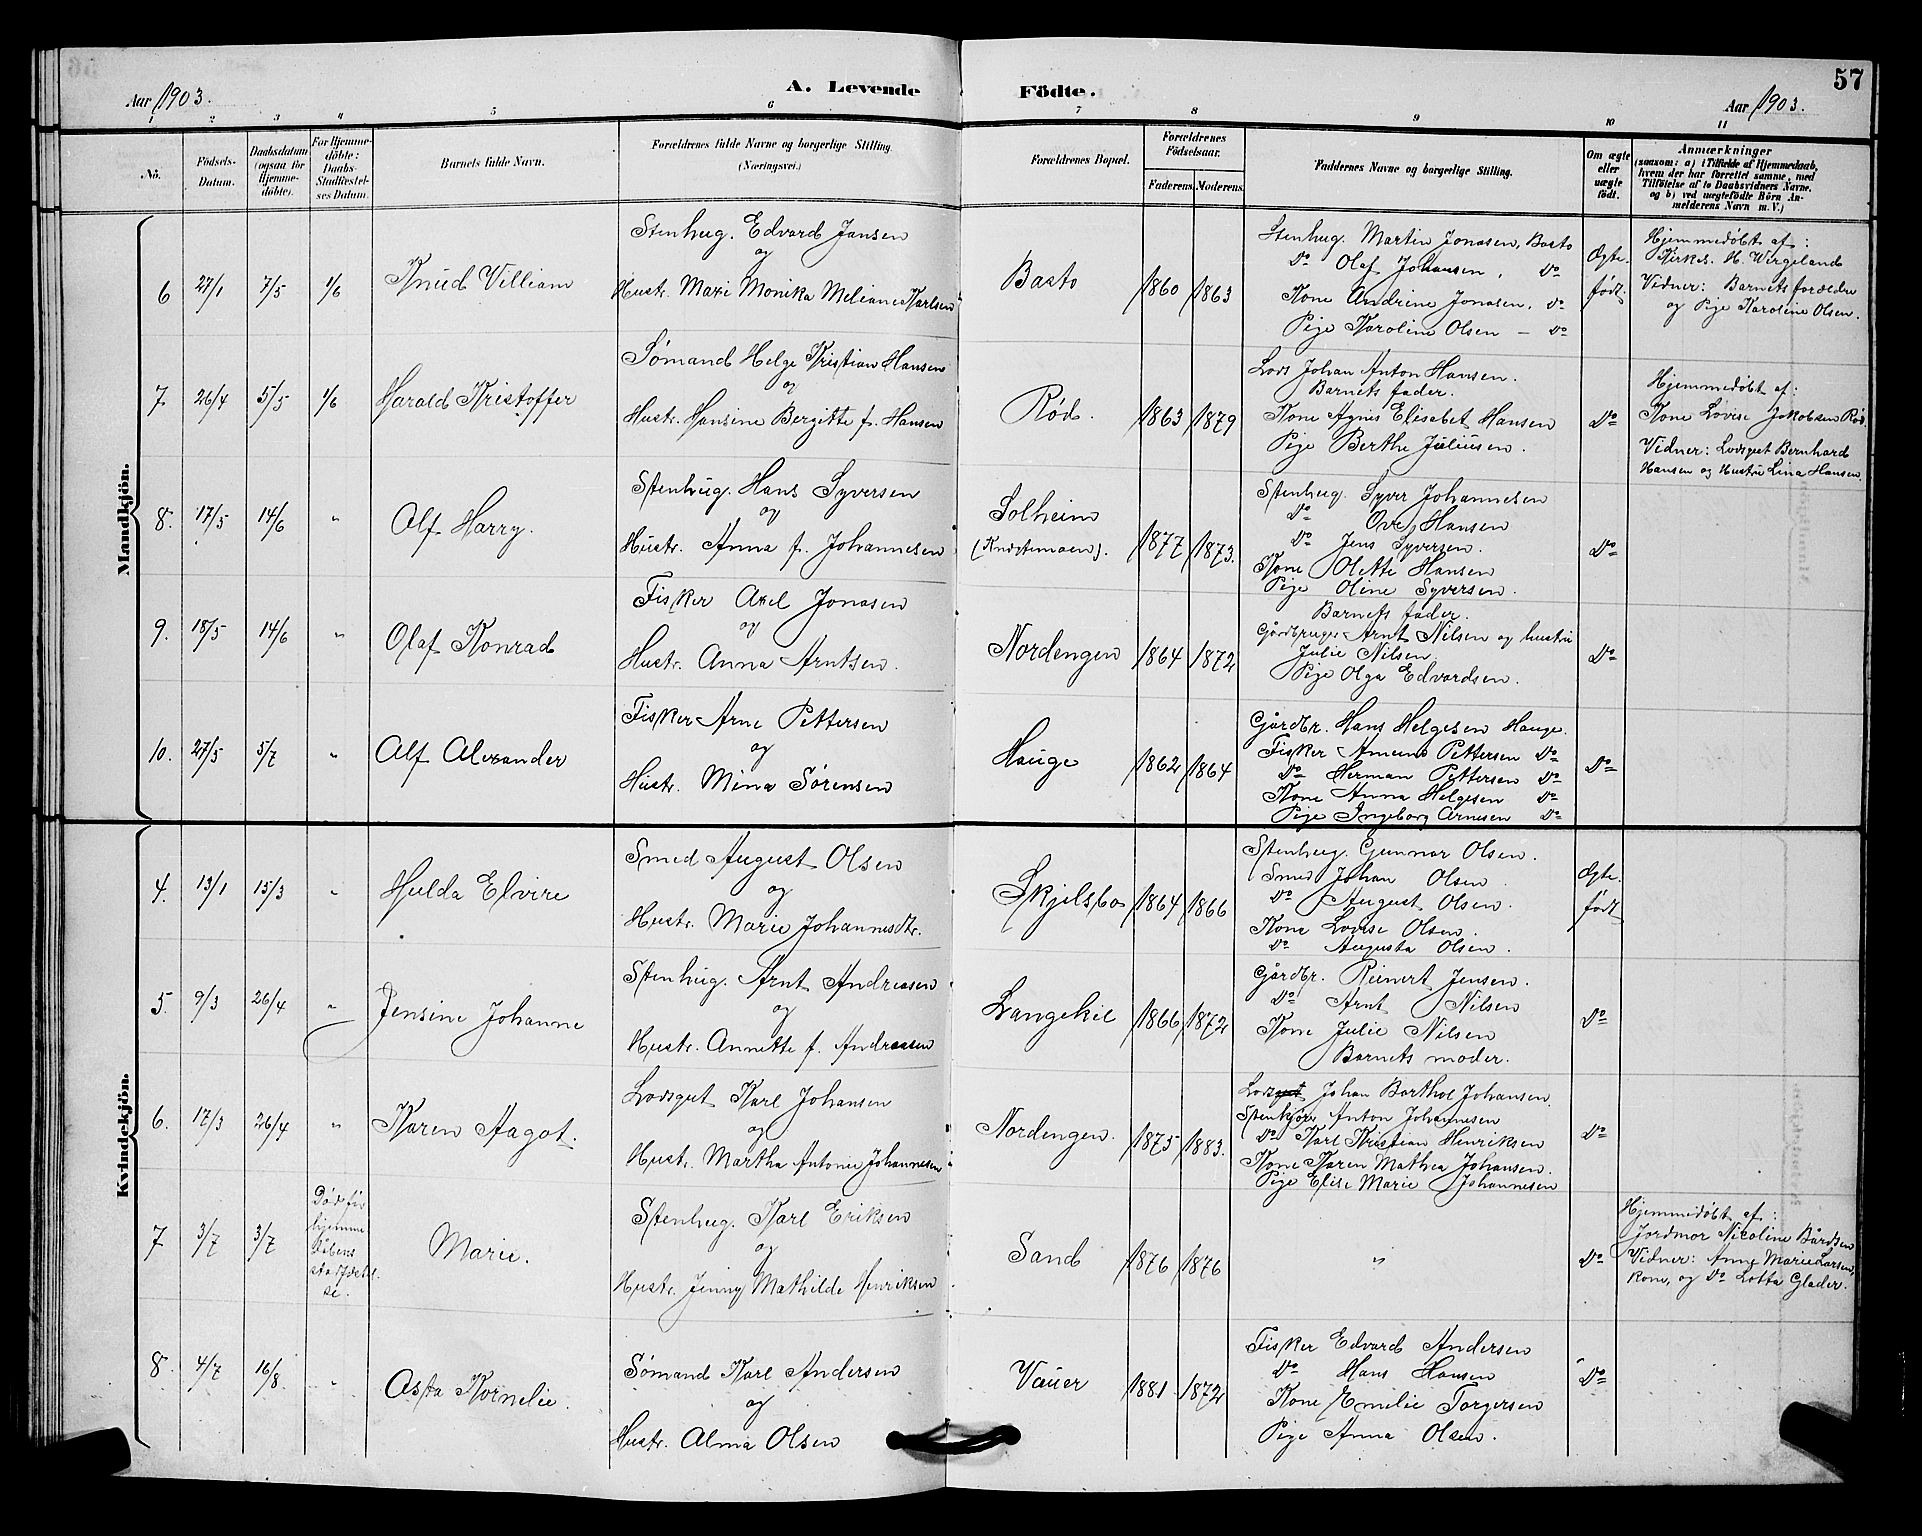 57
Aar 1903.
A. Levende Födte.
Aar 1903.
1 2 3 4 5 6 7 8 9 10 11
No.
Födsels-Datum.
Daabsdatum (ogsaa for Hjemmedöbte).
For Hjemmedöbte: Daabs-Stadfæstelses Datum.
Barnets fulde Navn.
Forældrenes fulde Navne og borgerlige Stilling.
(Næringsvei.)
Forældrenes Bopæl.
Forældrenes Födselsaar.
Faderens. Moderens.
Faddernes Navne og borgerlige Stilling.
Om ægte eller uægte født.
Anmærkninger
(saasom: a) i Tilfælde af Hjemmedaab, hvem der har forrettet samme, med Tilföielse af to Daabsvidners Navne, og b) ved uægtefödte Börn Anmelderens Navn m. V.)
Mandkjön.
6 27/1 7/5 1/6 Knud Villiam
Stenhug. Edvard Jansen
og
Hustr. Maxi Monika Meliane Karlsen
Basto 1860 1863
Stenhug. Martin Jonasen, Basto
Do Olaf Johansen, Do
Kone Andrine Jonasen, Do
Pige Karoline Olsen — Do
Ægte født.
Hjemmedøbt af:
Kirkes. H. Wergeland
Vidner: Barnets forældre
og Pige Karoline Olsen.
7. 26/4 5/5 1/6 Harald Kristoffer
Sømand Helge Kristian Hansen
og
Hustr. Hansine Bergitte f. Hansen
Rød. 1863 1879
Lods Johan Anton Hansen.
Barnets fader.
Kone Agnes Elisabet Hansen
Pige Berthe Juliusen.
Do
Hjemmedøbt af:
Kone Lovise Jakobsen Rød.
Vidner: Lodsgut Bernhard
Hansen og Hustru Lina Hansen.
8. 17/5 14/6 " Alf Harry.
Stenhug. Hans Syversen
og
Hustr. Anna f. Johannesen
Solheim
1877 1873.
Stenhug. Syver Johannesen
Do Ove Hansen
Do Jens Syversen.
Kone Olette Hansen
Pige Oline Syversen.
Do
9. 18/5 14/6 " Olaf Konrad
Fisker Axel Jonasen
og
Hustr. Anna Arntsen.
Nordengen 1864 1872
Barnets fader.
Gårdbruger Arnt Nilsen og hustru
Julie Nilsen.
Pige Olga Edvardsen.
Do
10. 27/5 5/7 " Alf Alexander
Fisker Arne Pettersen
og
Hustr. Mina Sørensen
Hauge 1862 1864
Gårdbr. Hans Helgesen Hauge.
Fisker Amund Pettersen Do
Do Herman Pettersen Do
Kone Anna Helgesen Do
Pige Ingeborg Arnesen Do
Do
Kvindekjön.
4. 13/1 15/3 " Hulda Elvire
Smed August Olsen
og
Hustr. Marie Johannesdtr.
Skjelsbo 1864 1866
Stenhug. Gunnar Olsen.
Smed Johan Olsen
Do August Olsen.
Kone Lovise Olsen.
Do Augusta Olsen.
Ægte født
5. 9/3 26/4 " Jensine Johanne
Stenhug. Arnt Andreasen
og
Hustr. Annette f. Andreasen
Langekil 1866 1872
Gårdbr. Reinert Jensen.
Do Arnt Nilsen
Kone Julie Nilsen
Barnets moder.
Do
6. 17/3 26/4 " Karen Aagot.
Lodsgut Karl Johansen
og
Hustr. Martha Antonie Johannesen
Nordengen. 1875 1883.
Lodsgut Johan Barthol Johansen.
Anton Johannesen
Do Karl Kristian Henriksen
Kone Karen Mathea Johansen.
Pige Elise Marie Johannesen
Do
7 3/7 3/7
Død før
hjemme
dåbens
stadfæstel
se.
Marie.
Stenhug. Karl Eriksen
og
Hustr. Jenny Mathilde Henriksen
Sand 1876 1876
"
Do
Hjemmedøbt af:
Jordmor Nicoline Bårdsen
Vidner: Anne Marie Larsen,
kone, og Do Lotta Glader.
8. 4/7 16/8 " Asta Kornelie.
Sømand Karl Andersen
og
Hustr. Alma Olsen
Vauer 1881 1872
Fisker Edvard Andersen
Do Hans Hansen
Kone Emelie Torgersen
Pige Anna Olsen.
Do